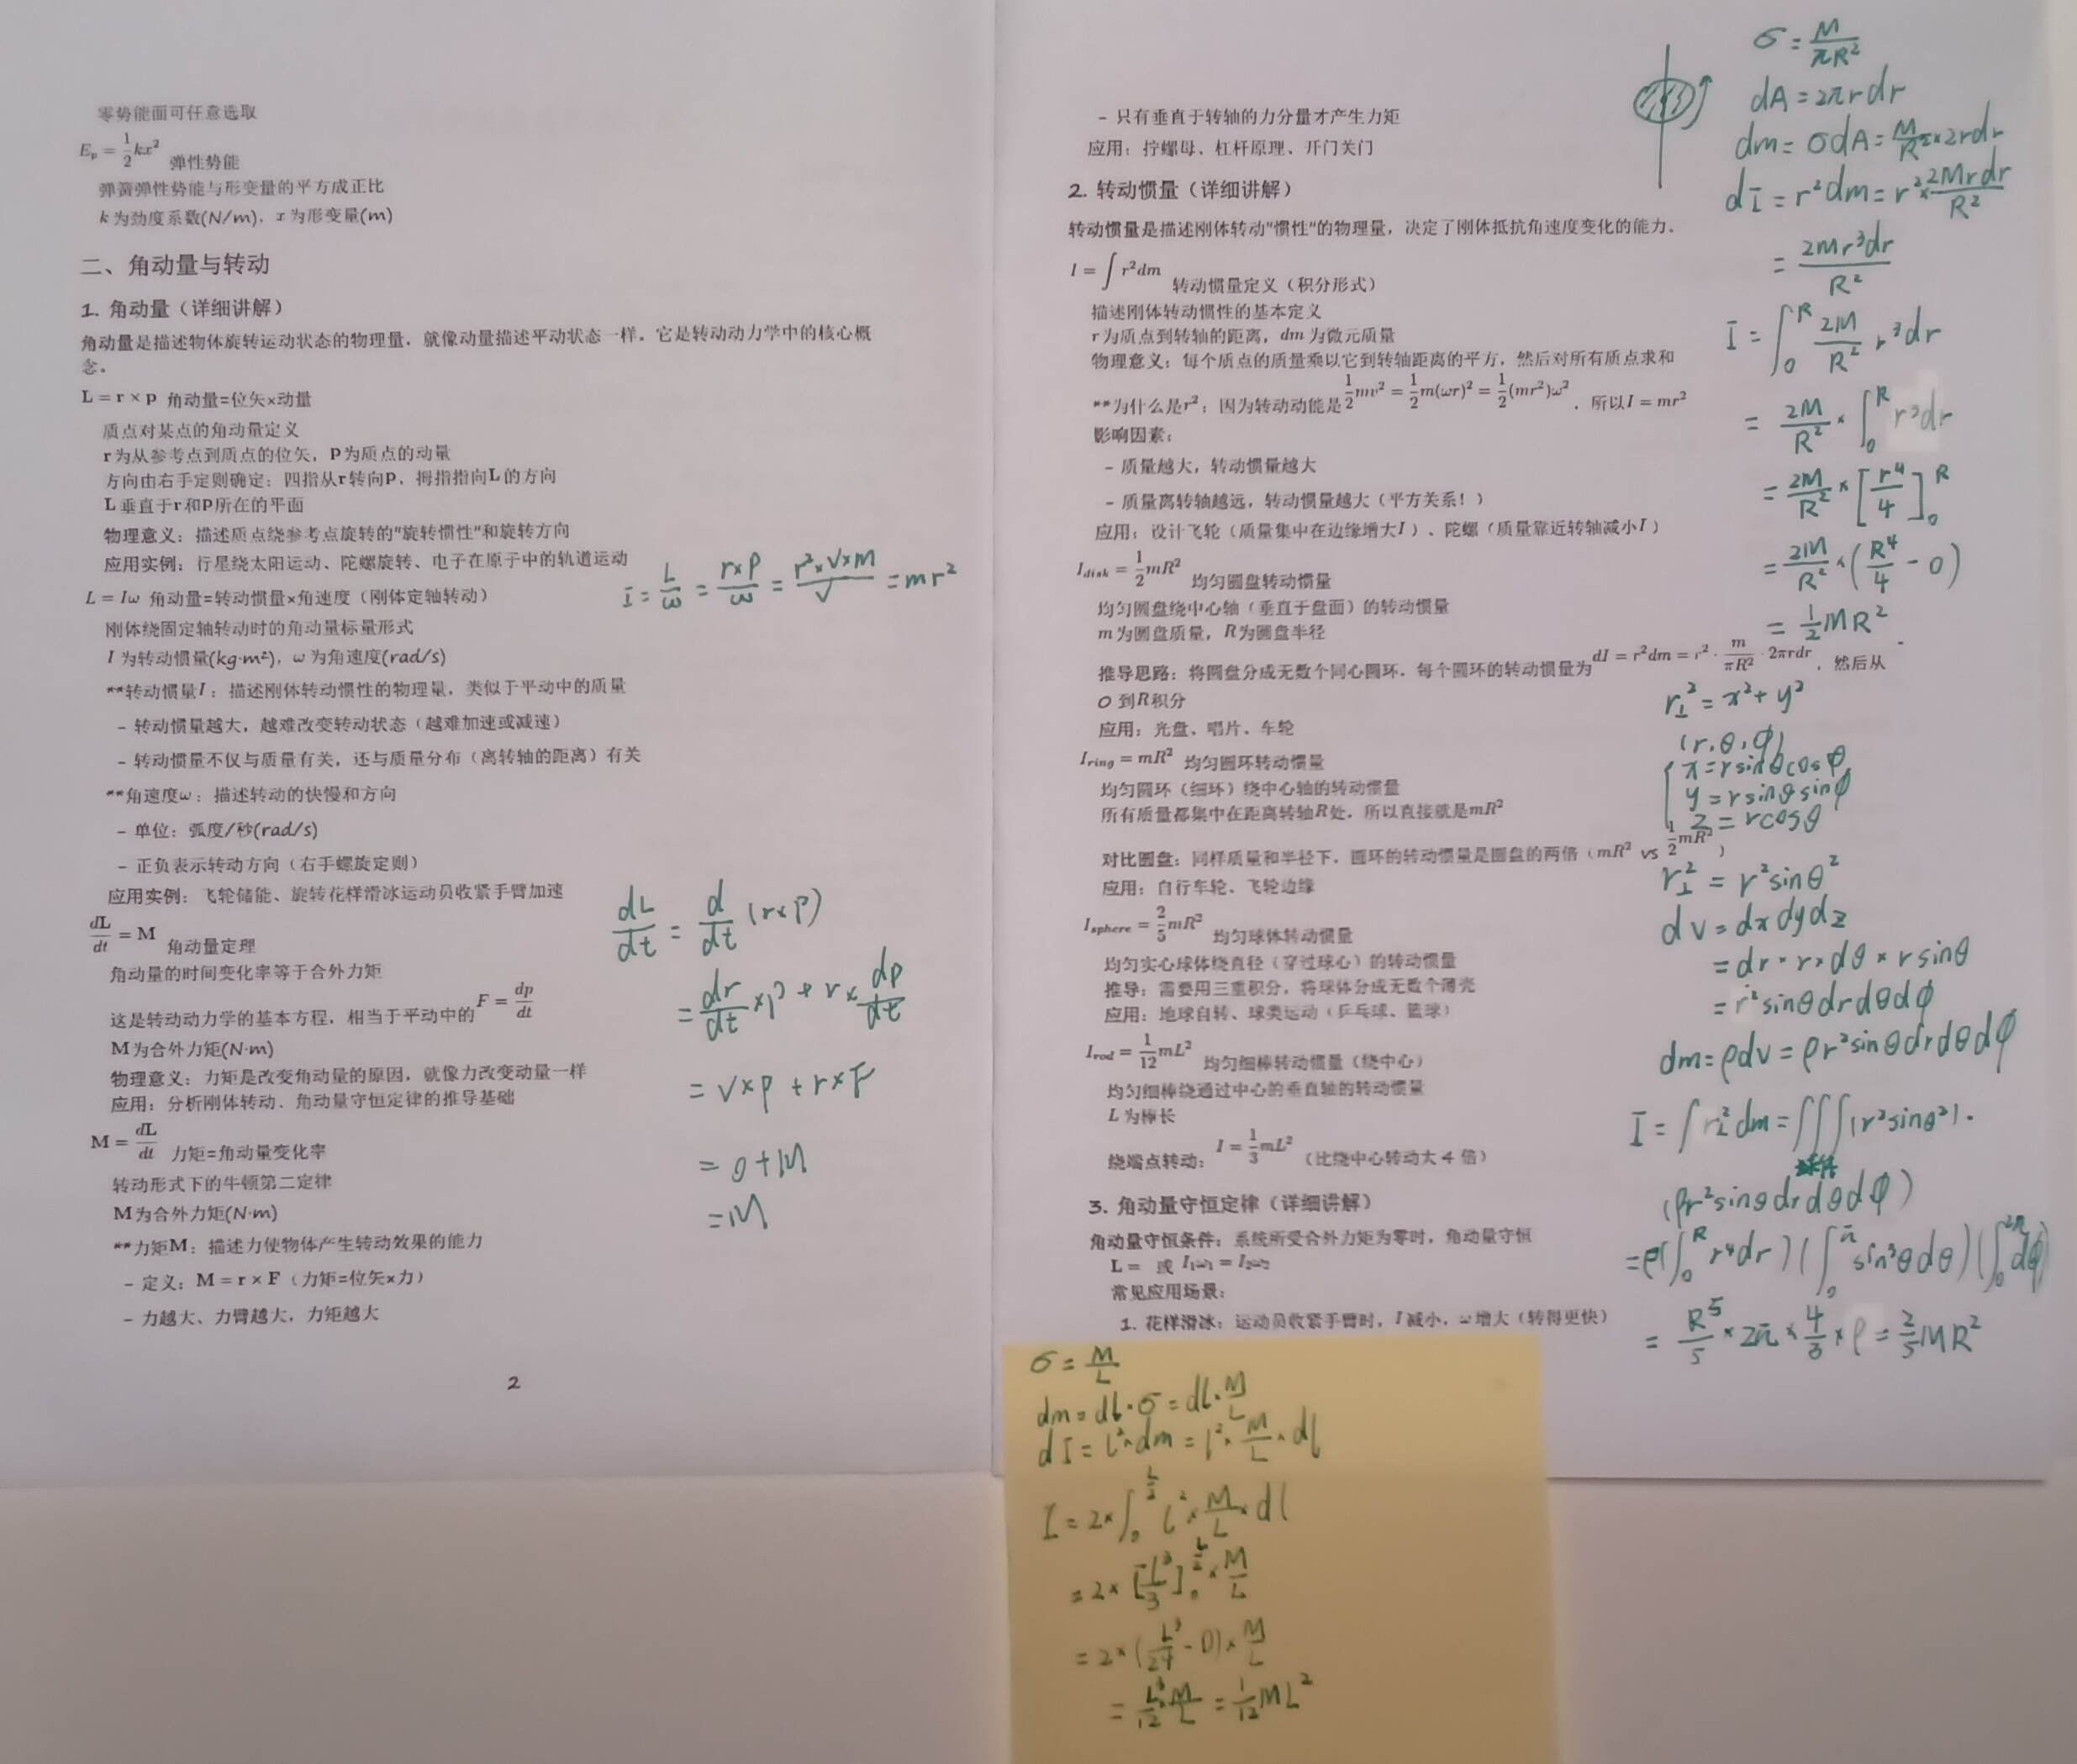 零势能面可任意选取
E_p = 1/2 kx² 弹性势能
弹簧弹性势能与形变量的平方成正比
k 为劲度系数(N/m)，x 为形变量(m)
二、角动量与转动
1. 角动量（详细讲解）
角动量是描述物体旋转运动状态的物理量，就像动量描述平动状态一样。它是转动动力学中的核心概
念。
L = r × p 角动量=位矢×动量
质点对某点的角动量定义
r为从参考点到质点的位矢，p为质点的动量
方向由右手定则确定：四指从r转向p，拇指指向L的方向
L垂直于r和p所在的平面
物理意义：描述质点绕参考点旋转的"旋转惯性"和旋转方向
应用实例：行星绕太阳运动、陀螺旋转、电子在原子中的轨道运动
L = Iω 角动量=转动惯量×角速度（刚体定轴转动）
I = L/ω = r×P/ω = r²×V×M/V = mr²
刚体绕固定轴转动时的角动量标量形式
I 为转动惯量(kg·m²)，ω 为角速度(rad/s)
**转动惯量I：描述刚体转动惯性的物理量，类似于平动中的质量
- 转动惯量越大，越难改变转动状态（越难加速或减速）
- 转动惯量不仅与质量有关，还与质量分布（离转轴的距离）有关
**角速度ω：描述转动的快慢和方向
- 单位：弧度/秒(rad/s)
- 正负表示转动方向（右手螺旋定则）
应用实例：飞轮储能、旋转花样滑冰运动员收紧手臂加速
dL/dt = M 角动量定理
角动量的时间变化率等于合外力矩
这是转动动力学的基本方程，相当于平动中的F = dp/dt
M为合外力矩(N·m)
物理意义：力矩是改变角动量的原因，就像力改变动量一样
应用：分析刚体转动、角动量守恒定律的推导基础
M = dL/dt 力矩=角动量变化率
转动形式下的牛顿第二定律
M为合外力矩(N·m)
**力矩M：描述力使物体产生转动效果的能力
- 定义：M = r × F（力矩=位矢×力）
- 力越大、力臂越大，力矩越大
dL/dt = d/dt (r×P)
= dr/dt × P + r × dp/dt
= V×P + r×F
= 0 + M
= M
2
- 只有垂直于转轴的力分量才产生力矩
应用：拧螺母、杠杆原理、开门关门
2. 转动惯量（详细讲解）
转动惯量是描述刚体转动"惯性"的物理量，决定了刚体抵抗角速度变化的能力。
I = ∫ r²dm 转动惯量定义（积分形式）
描述刚体转动惯性的基本定义
r为质点到转轴的距离，dm为微元质量
物理意义：每个质点的质量乘以它到转轴距离的平方，然后对所有质点求和
**为什么是r²：因为转动动能是1/2 mv² = 1/2 m(ωr)² = 1/2 (mr²)ω²，所以I = mr²
影响因素：
- 质量越大，转动惯量越大
- 质量离转轴越远，转动惯量越大（平方关系！）
应用：设计飞轮（质量集中在边缘增大I）、陀螺（质量靠近转轴减小I）
I_disk = 1/2 mR² 均匀圆盘转动惯量
均匀圆盘绕中心轴（垂直于盘面）的转动惯量
m为圆盘质量，R为圆盘半径
推导思路：将圆盘分成无数个同心圆环，每个圆环的转动惯量为dI = r²dm = r² · m/πR² · 2πrdr，然后从
0 到R积分
应用：光盘、唱片、车轮
I_ring = mR² 均匀圆环转动惯量
均匀圆环（细环）绕中心轴的转动惯量
所有质量都集中在距离转轴R处，所以直接就是mR²
对比圆盘：同样质量和半径下，圆环的转动惯量是圆盘的两倍（mR² vs 1/2 mR²）
应用：自行车轮、飞轮边缘
I_sphere = 2/5 mR² 均匀球体转动惯量
均匀实心球体绕直径（穿过球心）的转动惯量
推导：需要用三重积分，将球体分成无数个薄壳
应用：地球自转、球类运动（乒乓球、篮球）
I_rod = 1/12 mL² 均匀细棒转动惯量（绕中心）
均匀细棒绕通过中心的垂直轴的转动惯量
L 为棒长
绕端点转动：I = 1/3 mL²（比绕中心转动大 4 倍）
3. 角动量守恒定律（详细讲解）
角动量守恒条件：系统所受合外力矩为零时，角动量守恒
L = 或 I₁ω₁ = I₂ω₂
常见应用场景：
1. 花样滑冰：运动员收紧手臂时，I 减小，ω 增大（转得更快）
σ = M/πR²
dA = 2πrdr
dm = σdA = M/R² × 2rdr
dI = r²dm = r² × 2Mrdr/R²
= 2Mr³dr/R²
I = ∫₀ᴿ 2M/R² r³dr
= 2M/R² × ∫₀ᴿ r³dr
= 2M/R² × [r⁴/4]₀ᴿ
= 2M/R² × (R⁴/4 - 0)
= 1/2 MR²
r⊥² = x² + y²
(r, θ, φ)
x = rsinθcosφ
y = rsinθsinφ
z = rcosθ
r⊥² = r²sinθ²
dv = dxdydz
= dr × r × dθ × rsinθ
= r²sinθdrdθdφ
dm = ρdv = ρr²sinθdrdθdφ
I = ∫r⊥²dm = ∫∫∫(r²sinθ²)·
(ρr²sinθdrdθdφ)
= ρ(∫₀ᴿ r⁴dr)(∫₀^π sin³θdθ)(∫₀^2π dφ)
= R⁵/5 × 2π × 4/3 × ρ = 2/5 MR²
σ = M/L
dm = dl·σ = dl·M/L
dI = l²×dm = l²×M/L×dl
I = 2×∫₀^(L/2) l²×M/L×dl
= 2×[l³/3]₀^(L/2)×M/L
= 2×(L³/24 - 0)×M/L
= L³/12 × M/L = 1/12 ML²